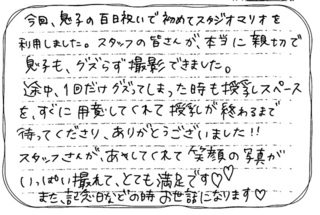 今回、息子の百日祝いで初めてスタジオマリオを
利用しました。スタッフの皆さんが、本当に親切で
息子も、グズらず撮影できました。
途中、1回だけグズってしまった時も授乳スペース
を、すぐに用意してくれて授乳が終わるまで
待ってくださり、ありがとうございました!!
スタッフさんが、あやしてくれて笑顔の写真が
いっぱい撮れて、とても満足です♡♡
また、記念日などの時お世話になります♡